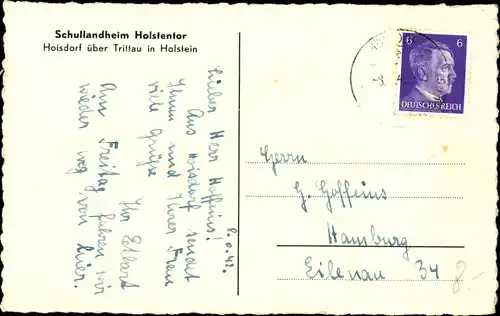 Schullandheim Holstentor
Hoisdorf über Trittau in Holstein
Lieber Herr Goffeins!
Aus Hoisdorf sendet
Ihnen und Ihrer Frau
viele Grüße
Ihr
Am Freitag fahren wir
wieder weg von hier.
6 6
DEUTSCHES REICH
Herrn
G. Goffeins
Hamburg
Eilenau 34
8.-